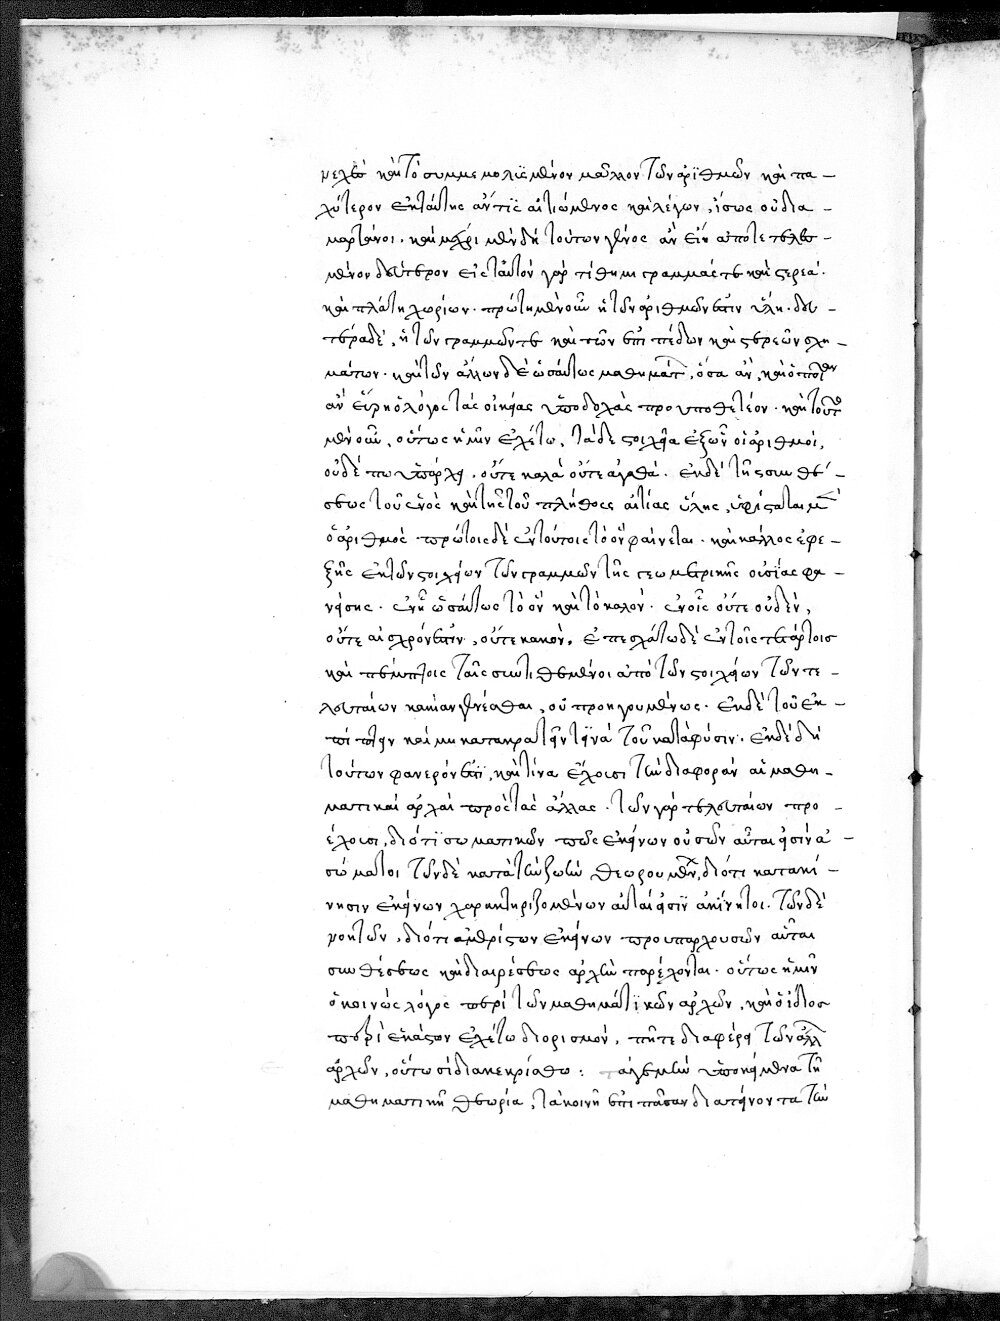 μελει καὶ τὸ συμμεμολυσμένον μᾶλλον τῶν ἀριθμῶν καὶ πα-
χύτερον ἐκ ταύτης ἄν τις αἰτιώμενος καὶ λέγων, ἴσως οὐ δια-
μαρτάνοι. καὶ μέχρι μὲν δὴ τούτων γένος ἂν εἴη ἀποτετελεσ-
μένον δεύτερον εἰς ταὐτὸν γὰρ τίθημι γραμμάς τε καὶ στερεά.
καὶ πλάτη χωρίων. πρώτη μὲν οὖν ἡ τῶν ἀριθμῶν ἐστιν ὕλη. δευ-
τέρα δὲ, ἡ τῶν γραμμῶν τε καὶ τῶν ἐπιπέδων καὶ στερεῶν σχη-
μάτων. καὶ τῶν ἄλλων δὲ ὡσαύτως μαθημάτ, ὅσα ἂν, καὶ ὁποῖα
ἂν εὕρη ὁ λόγος τὰς οἰκείας ὑποδοχὰς προυποθετέον. καὶ τοῦτο
μὲν οὖν, οὕτως ἡμῖν ἐχέτω, τὰ δὲ στοιχεῖα ἐξ ὧν οἱ ἀριθμοί,
οὐδέπω ὑπάρχει, οὔτε καλὰ οὔτε ἀγαθά. ἐκ δὲ τῆς συνθέ-
σεως τοῦ ἑνὸς καὶ τῆς τοῦ πλήθους αἰτίας ὕλης, ὑφίσταται μὲν
ὁ ἀριθμὸς πρώτοις δὲ ἐν τούτοις τὸ ὂν φαίνεται. καὶ κάλλος ἐφε-
ξῆς ἐκ τῶν στοιχείων τῶν γραμμῶν τῆς γεωμετρικῆς οὐσίας φα-
νείσης. ἐν ἧ ὡσαύτως τὸ ὂν καὶ τὸ καλόν. ἐν οἷς οὔτε οὐδὲν,
οὔτε αἰσχρόν ἐστιν, οὔτε κακόν. ἐπεσχάτω δὲ ἐν τοῖς τετάρτοις
καὶ πέμπτοις τοῖς συντιθεμένοι ἀπὸ τῶν στοιχείων τῶν τε-
λευταίων κακίαν γενέσθαι, οὐ προηγουμένως. ἐκ δὲ τοῦ ἐκ-
πίπτειν καὶ μὴ κατακρατεῖν τινὰ τοῦ κατὰ φύσιν. ἐκ δὲ δὴ
τούτων φανερόν ἐστι, καὶ τίνα ἔχοισι τὴν διαφορὰν αἱ μαθη-
ματικαὶ ἀρχαὶ πρὸς τὰς ἄλλας. τῶν γὰρ τελευταίων προ-
έχοισι, διότι σωματικῶν πως ἐκείνων οὐσῶν αὗται εἰσὶν ἀ-
σώματοι τῶν δὲ κατὰ τὴν ζωὴν θεωρουμέν, διότι κατὰ κί-
νησιν ἐκείνων χαρακτηριζομένων αὐταί εἰσιν ἀκίνητοι. τῶν δὲ
νοητῶν, διότι ἀμερίστων ἐκείνων προυπαρχουσῶν αὗται
συνθέσεως καὶ διαιρέσεως ἀρχὴν παρέχονται. οὕτως ἡμῖν
ὁ κοινὸς λόγος περὶ τῶν μαθηματικῶν ἀρχῶν, καὶ ὁ ἴδιος
περὶ ἑκάστων ἐχέτω διορισμὸν, πῆ τε διαφέρει τῶν ἄλλ
ἀρχῶν, οὕτωσὶ διακεκρίσθω: τὰ γε μὴν ὑποκείμενα τῆ
μαθηματικῆ θεωρία, τὰ κοινῆ ἐπὶ πᾶσαν διατείνοντα τὴν